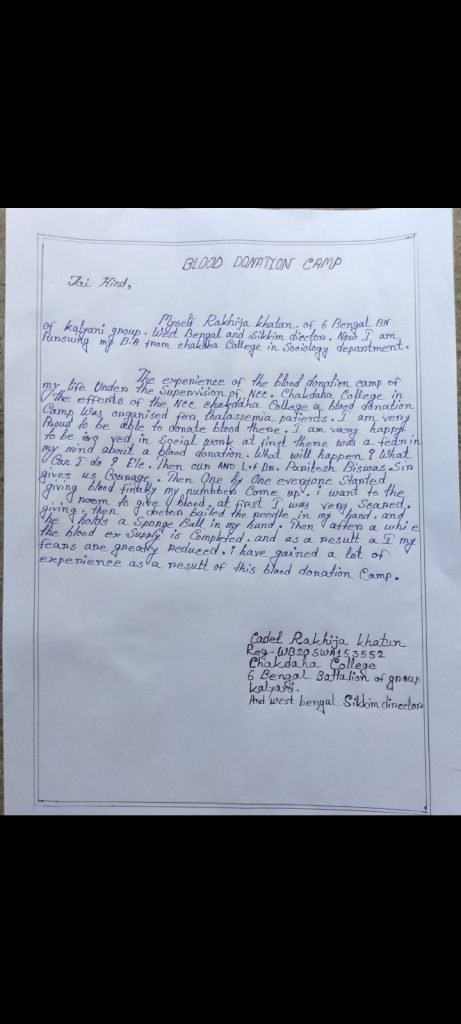 BLOOD DONATION CAMP
Jai Hind,
Myself Rakhija khatun. of 6 Bengal BN
of kalyani group. West Bengal and Sikkim diector. Now I am
Punsuing my B.A from chakdha College in Sociology department.
The experience of the blood donation camp of
my life Under the Supervision of NCC. Chakdaha College in
the efforts of the NCC chakdaha College a blood donation
Camp Was organised for thalassemia patients. I am very
Proud to be able to donate blood there. I am vary happy
to be ved in Social work at first there was a in
my mind about a blood donation. What will happen ? What
Can I do ? Ele. Then our ANO Lt Dr. Paritosh Biswas Sir
gives us Courage. Then One by One everyone Started
giving blood finally my numbber Come up. i want to the
room to give blood, at first I was very Scared.
giving, then docton the needle in my hand. and
he holds a Sponge Ball in my hand. Then after a whi e
the blood ex Supply is Completed. and as a result a I my
fears are greatly Reduced. i have gained a lot of
experience as a result of this blood donation Camp.
Cadet Rakhija khatun
Reg-WB20SWA153552
Chakdaha College
6 Bengal Battalion of group
kalyani.
And west bengal Sikkim director